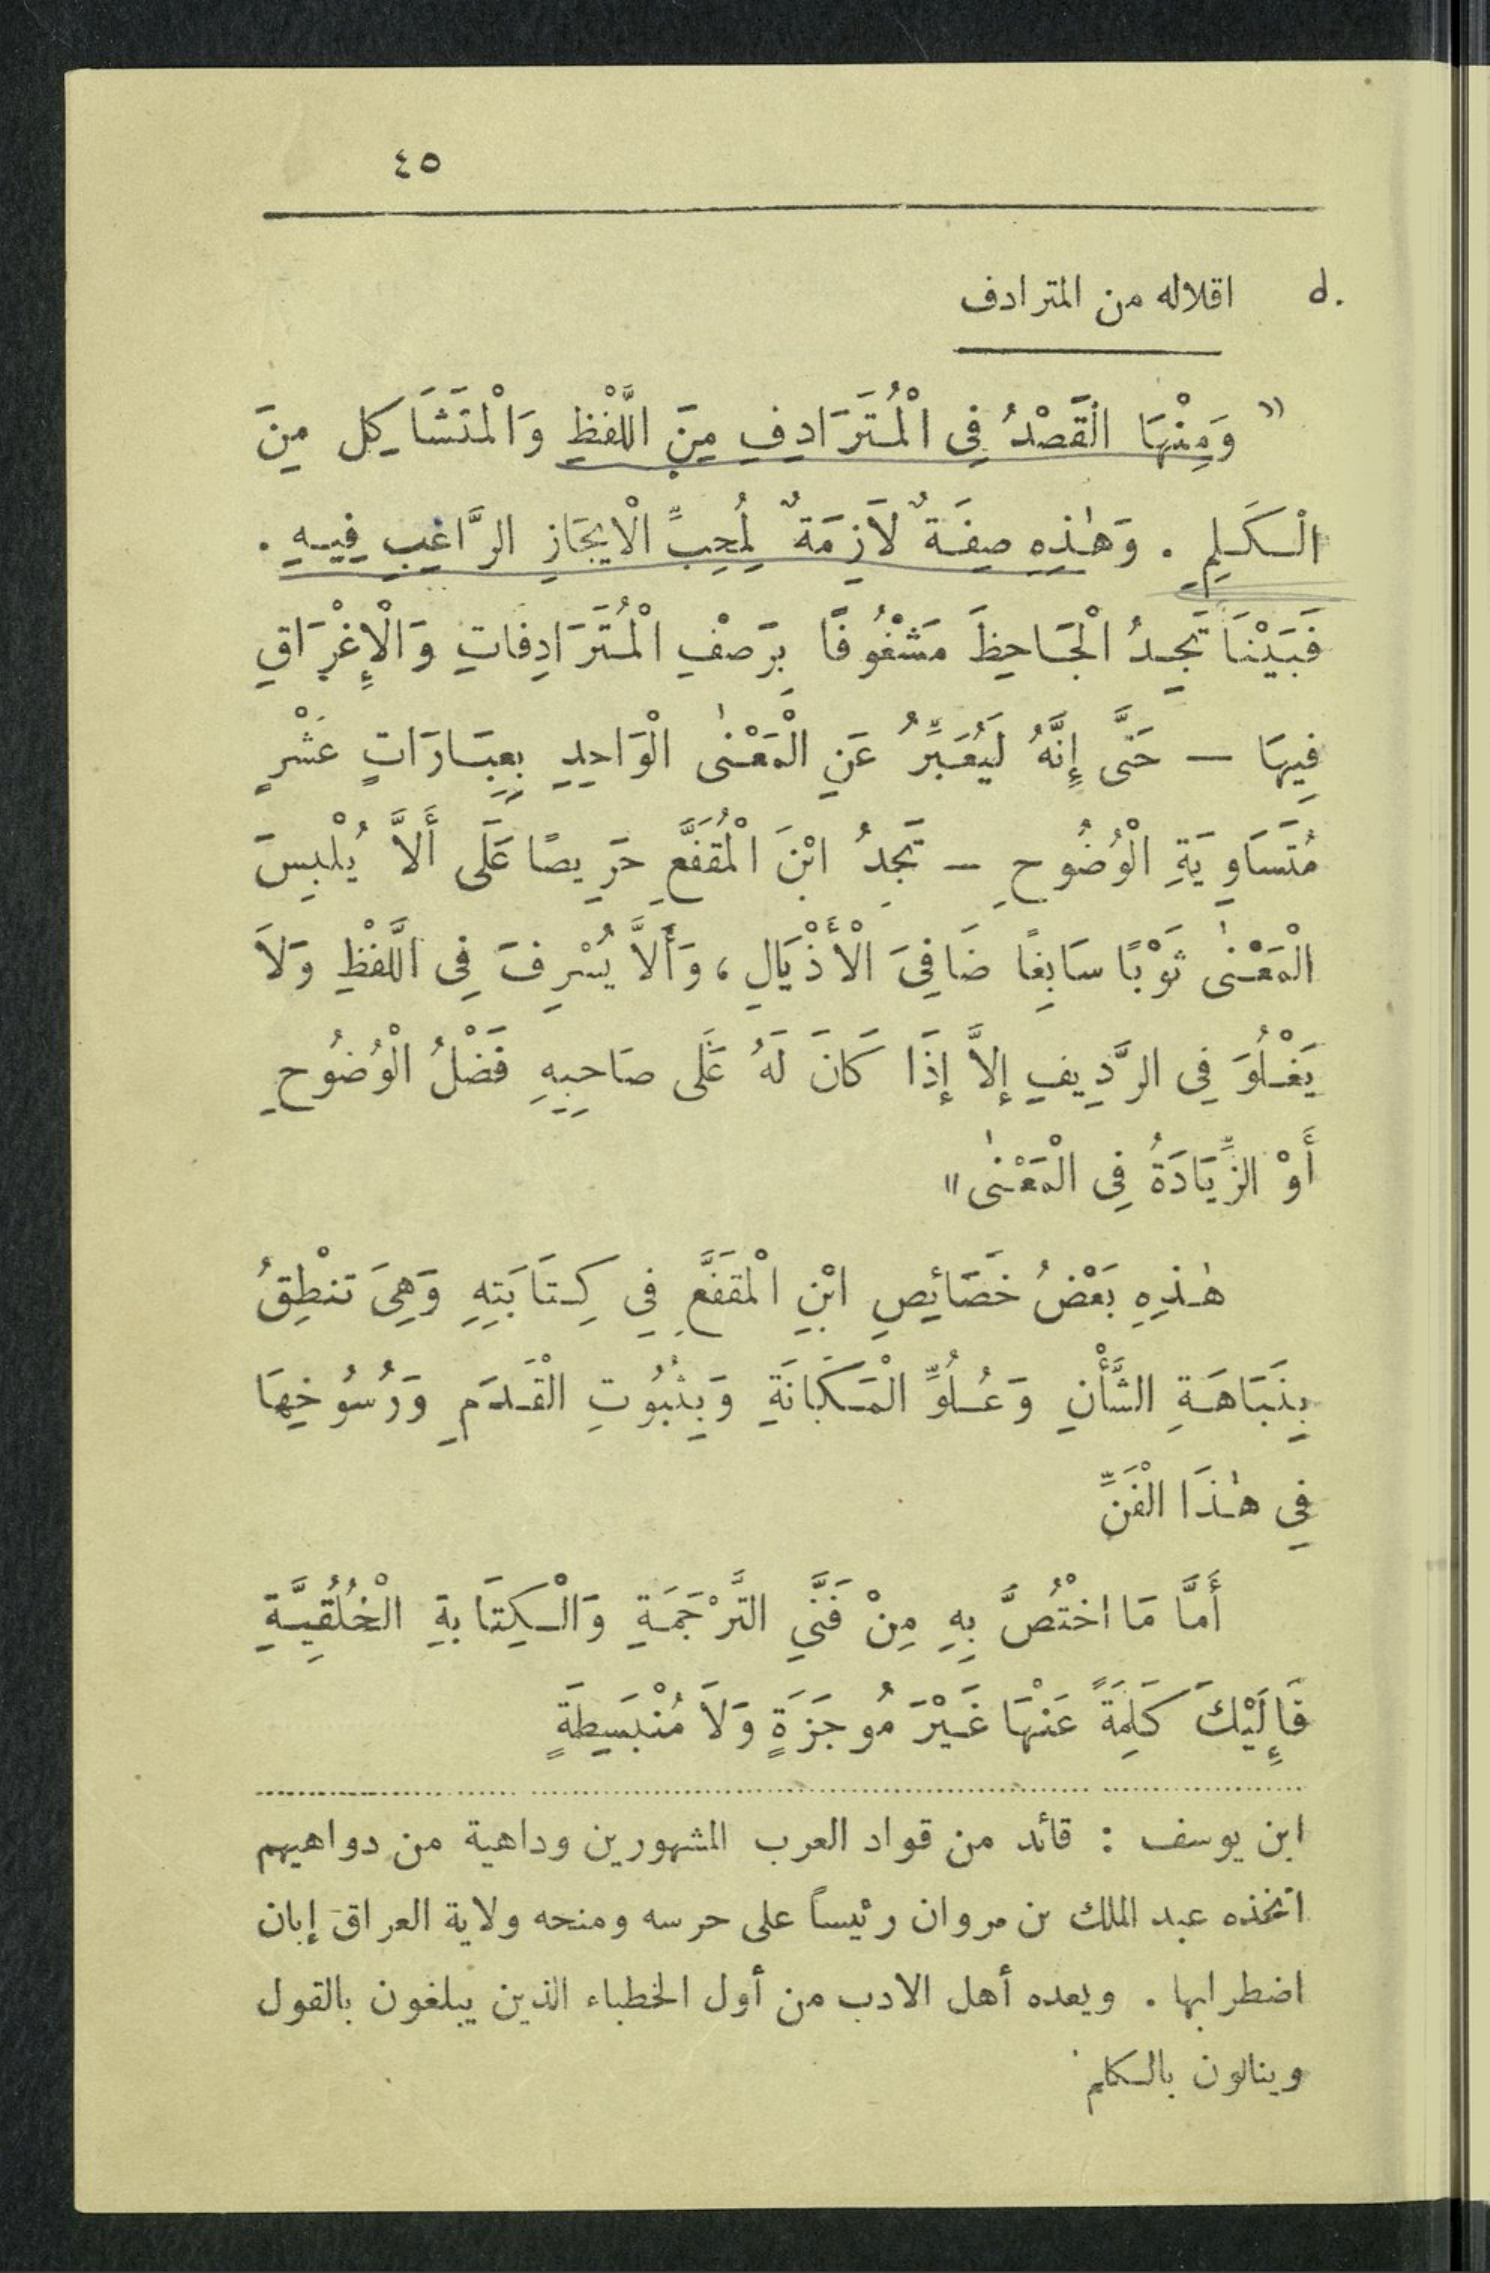 ٤٥
d. اقلاله من المترادف
« وَمِنْهَا الْقَصْدُ فِى الْمُتَرَادِفِ مِنَ اللَّفْظِ وَالْمَتَشَاكِل مِنَ
الْكَلِمِ . وَهٰذِهِ صِفَةٌ لَازِمَةٌ لِمُحِبِّ الْايِجَازِ الرَّاغِبِ فِيهِ .
فَبَيْنَا تَجِدُ الْجَاحِظَ مَشْغُوفًا بِرَصْفِ الْمُتَرَادِفَاتِ وَالْإِغْرَاقِ
فِيهَا — حَتَّى إِنَّهُ لَيُعَبِّرُ عَنِ الْمَعْنٰى الْوَاحِدِ بِعِبَارَاتٍ عَشْرٍ
مُتَسَاوِيَةِ الْوُضُوحِ — تَجِدُ ابْنَ الْمُقَفَّعِ حَرِيصًا عَلَى أَلاَّ يُلْبِسَ
الْمَعْنٰى ثَوْبًا سَابِغًا ضَافِىَ الْأَذْيَالِ ، وَأَلاَّ يُسْرِفَ فِى اللَّفْظِ وَلاَ
يَغْلُوَ فِى الرَّدِيفِ إِلاَّ إِذَا كَانَ لَهُ عَلَى صَاحِبِهِ فَضْلُ الْوُضُوحِ
أَوْ الزِّيَادَةُ فِى الْمَعْنٰى »
هٰذِهِ بَعْضُ خَصَائِصِ ابْنِ الْمُقَفَّعِ فِي كِتَابَتِهِ وَهِىَ تَنْطِقُ
بِنَبَاهَةِ الشَّأْنِ وَعُلُوِّ الْمَكَانَةِ وَبِثُبُوتِ الْقَدَمِ وَرُسُوخِهَا
فِي هٰذَا الْفَنِّ
أَمَّا مَا اخْتُصَّ بِهِ مِنْ فَنَّيِ التَّرْجَمَةِ وَالْكِتَابَةِ الْخُلُقِيَّةِ
فَإِلَيْكَ كَلِمَةً عَنْهَا غَيْرَ مُوجَزَةٍ وَلاَ مُنْبَسِطَةٍ
ابن يوسف : قائد من قواد العرب المشهورين وداهية من دواهيهم
اتخذه عبد الملك بن مروان رئيساً على حرسه ومنحه ولاية العراق إبان
اضطرابها . ويعده أهل الادب من أول الخطباء الذين يبلغون بالقول
وينالون بالكلم